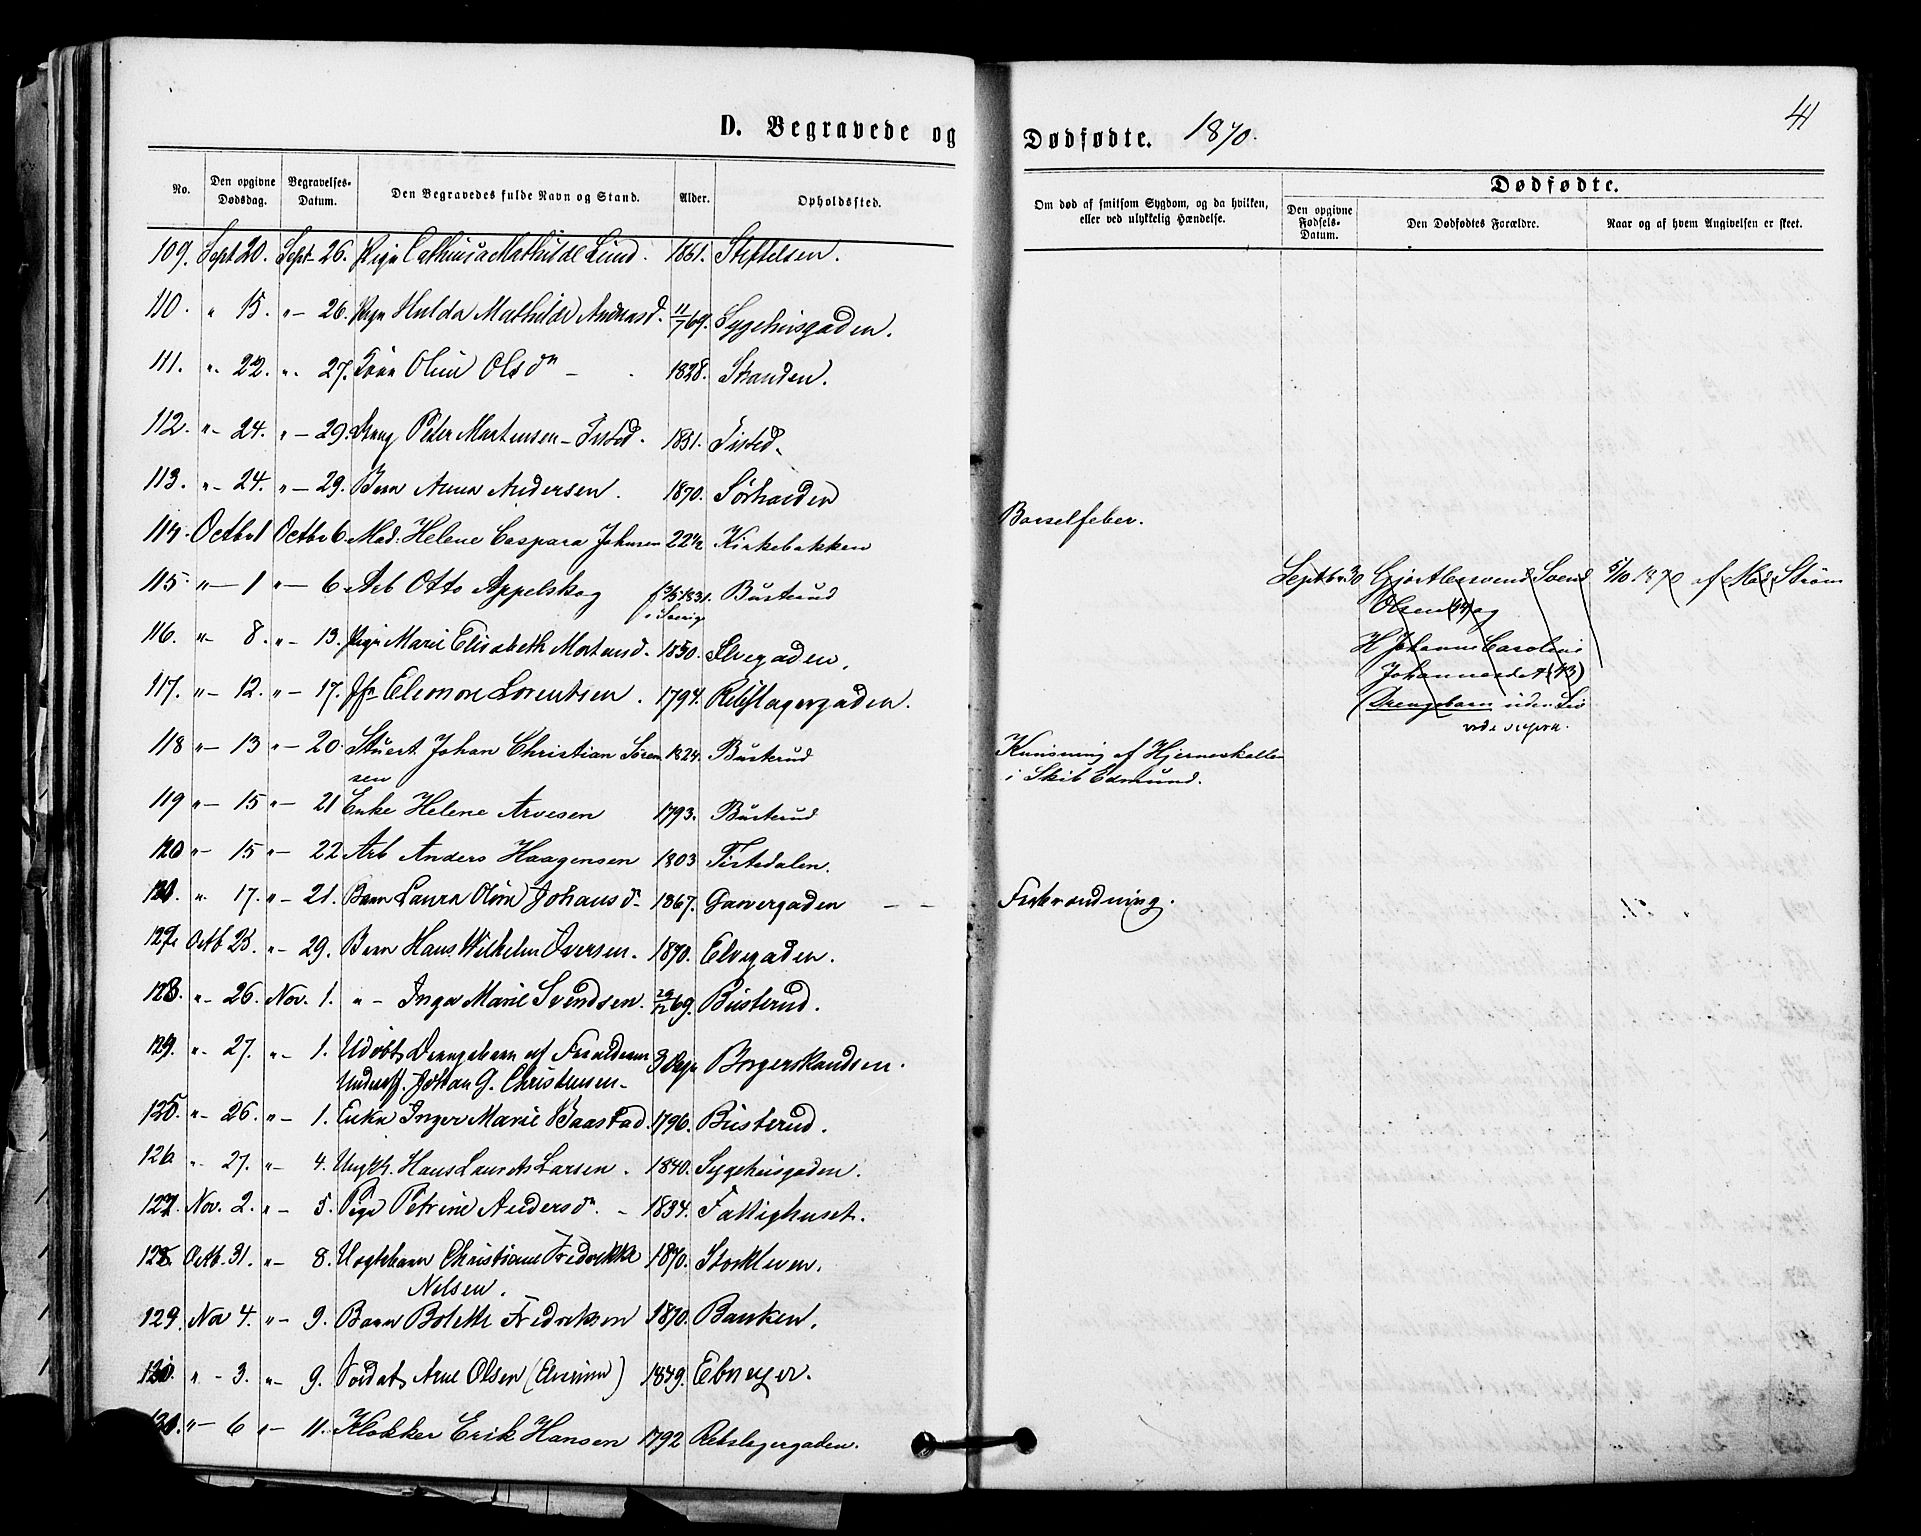 D. Begravede og Dødfødte. 1870. 41
No. Den opgivne Dødsdag. Begravelses-Datum. Den Begravedes fulde Navn og Stand. Alder. Opholdssted. Om død af smitsom Sygdom, og da hvilken, eller ved ulykkelig Hændelse. Dødfødte.
Den opgivne Fødsels-Datum. Den Dødfødtes Forældre. Naar og af hvem Angivelsen er skeet.
109. Sept 20. Sept 26. Pige Mathilde Lund. 1861. Stiftelsen.
110. " 15. "– 26. Pige Hulda Mathilde Andreasd. 11/7 69. Sygehusgaden.
111. "- 22. "- 27. Olsdn 1828. Stranden.
112. "- 24. "– 29. Peter Martensen – Tisted. 1851. Tisted.
113. "- 24. "– 29. Barn Anna Andersen. 1870. Sørhalden
114. Octbr 1 Octbr 6. Mad: Helene Caspara Johnsen 22 1/2 Kirkebakken Barselfeber.
115. "– 1 "– 6 Arb Otto Appelskog 1831. i Sverige Busterud
Septbr 30 Svend 5/10 1870 af Mad. Strøm
Olsen og
Johanne Caroline
(Drengebarn uden Liv
vide supra.
116. "- 8. "- 13. Pige Marie Elisabeth Mortensd. 1850. Elvegaden.
117. "- 12. "- 17. Jfr Eleonore Lorentsen. 1794. Rebslagergaden.
118 "– 13 "– 20. Stuert Johan Christian Søren 1824. Busterud
sen
Knusning af Hjerneskallen
i Skib Edmund.
119 "– 15 "– 21 Enke Helene Arvesen 1793. Busterud
120 "– 15 "– 22 Arb Anders Haagensen 1803 Tistedalen.
121. "- 17. "– 21. Barn Laura Oline Johansd. 1867. Garvergaden – – Forbrænding.
122. Octb 25. "- 29. Barn Hans Wilhelm Iversen. 1870. Elvegaden.
123. "- 26. Nov. 1. "– Inger Marie Svendsen. 29/12 69. Busterud.
124. "- 27. "- 1. Udøbt Drengebarn af Forældrene 3 Dage Borgerskandsen.
Underoff. Johan G. Christensen–
125. "- 26. "- 1. Enke Inger Marie Baastad. 1796. Busterud.
126 "- 27. "- 4. Ungk. Hans Laurits Larsen. 1840. Sygehusgaden.
127. Nov. 2. "- 5. Pige Petrine Andersdn. – 1834. Fattighuset.
128. Octb. 31. "- 8. Christiane Fredrikke 1870. Storkleven.
Nelsen.
129. Nov 4. "- 9. Barn Bolette Fredriksen 1870. Banken.
130. "- 3. "- 9. Soldat Arne Olsen (Elverum) 1849.
131. "– 6 "– 11. Klokker Erik Hansen 1792 Rebslagergaden.